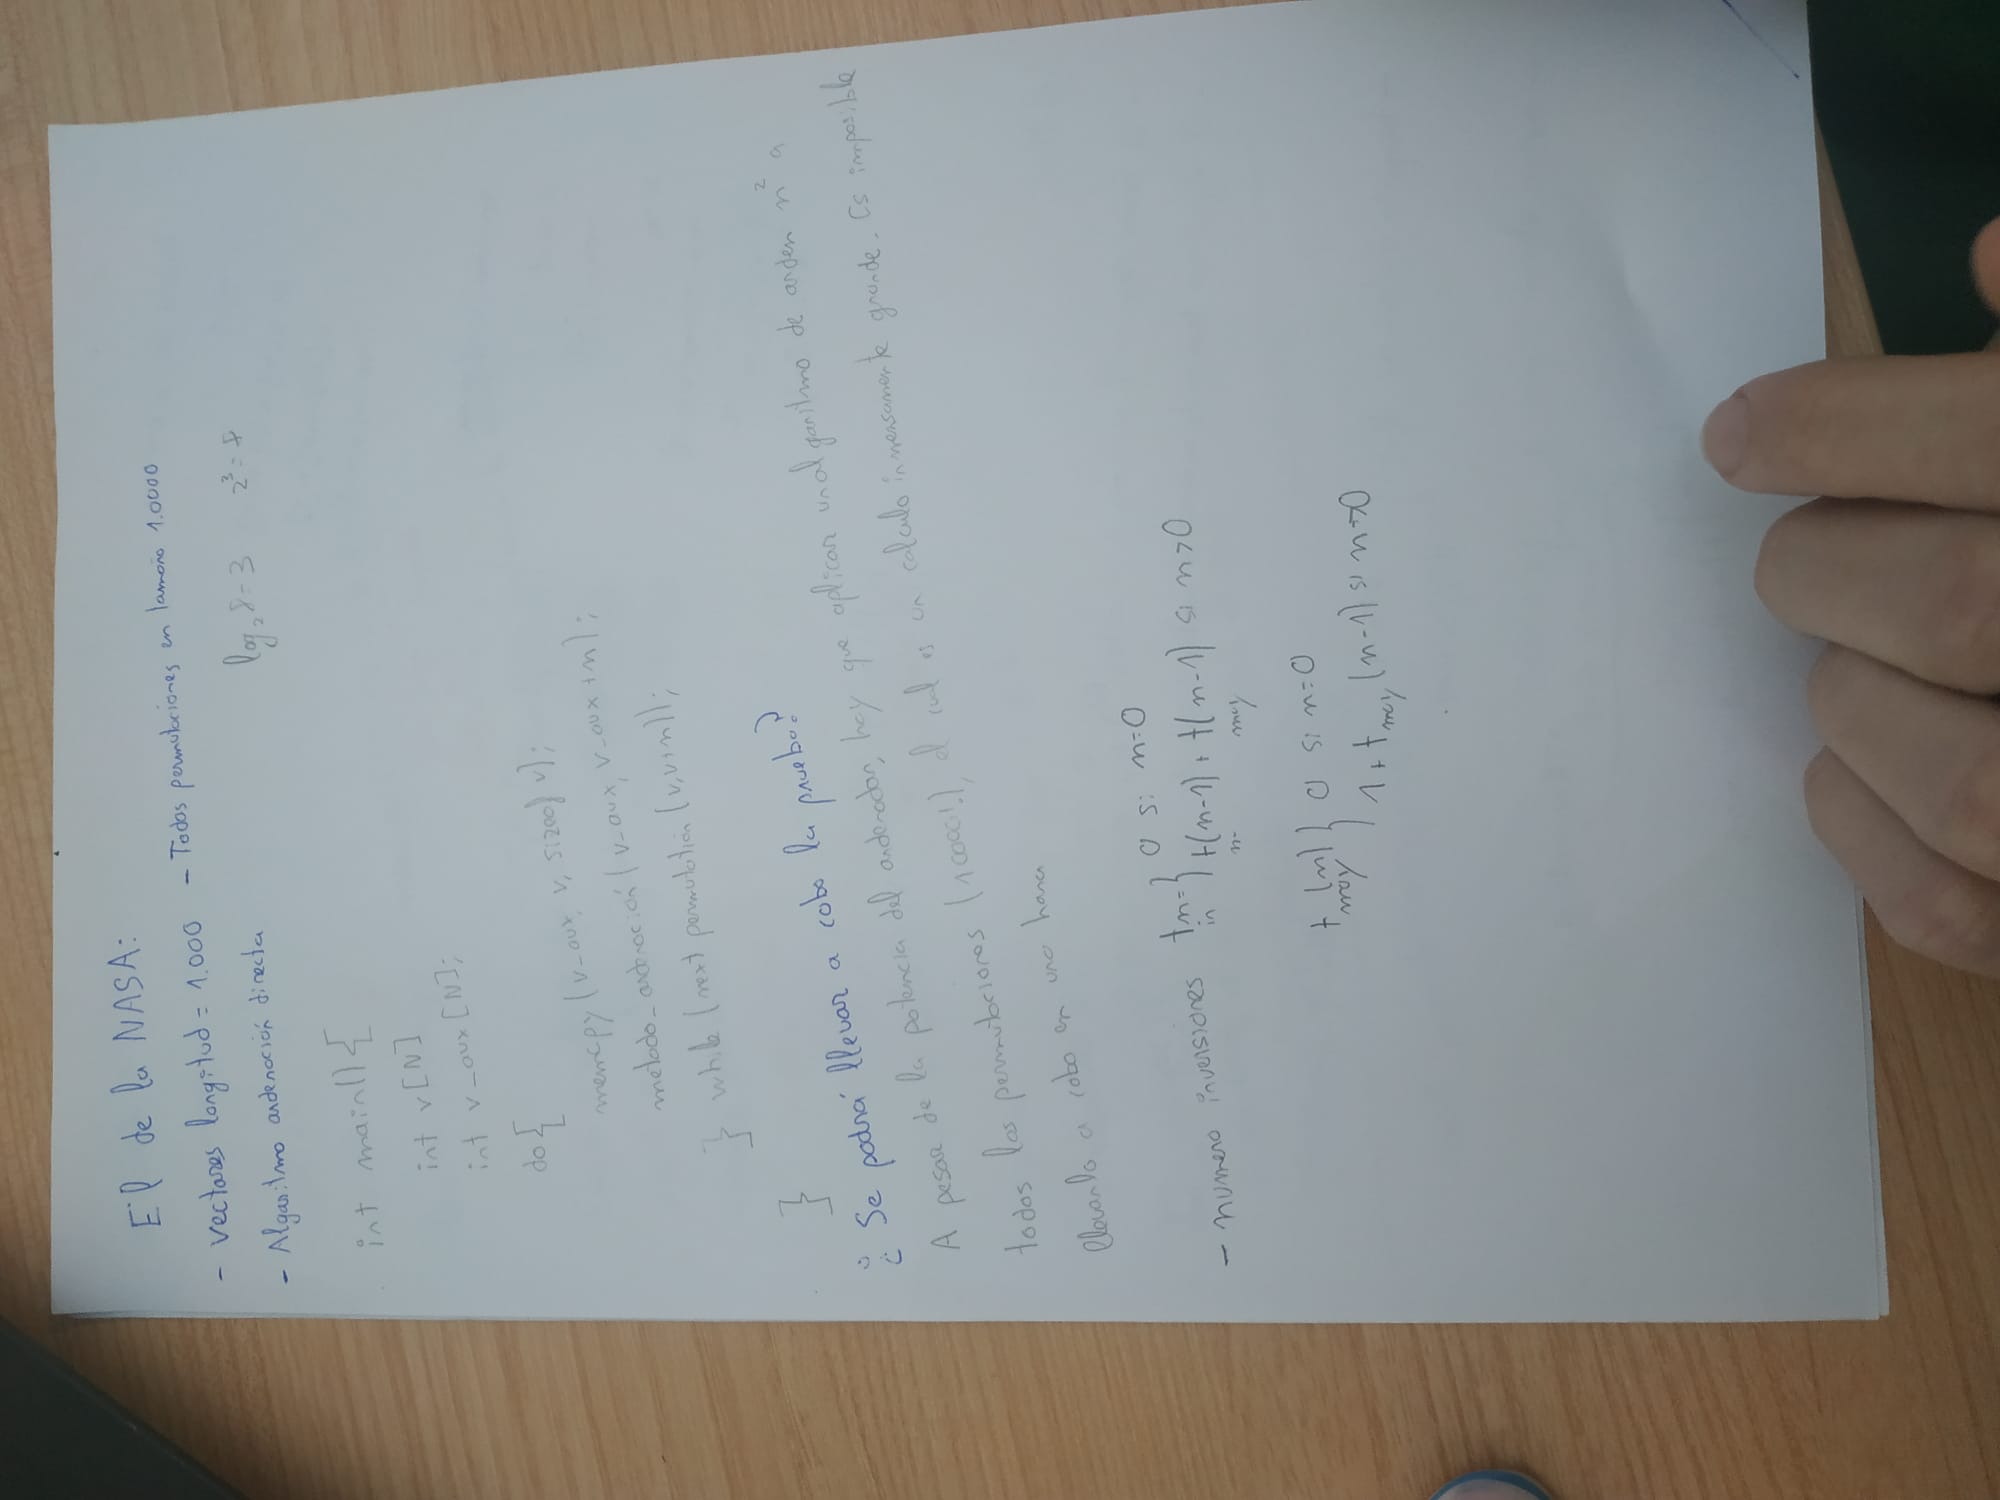 El de la NASA:
- Vectores longitud = 1.000 - Todos permutaciones en tamaño 1.0000
- Algoritmo ordenación directa
log₂ 8 = 3 2³ = 8
int main() {
int v[N]
int v_aux[N];
do {
memcpy (v_aux, v, sizeof v);
metodo_ordenación (v_aux, v_aux + n);
} while (next permutation (v, v+n));
}
¿Se podrá llevar a cabo la prueba?
A pesar de la potencia del ordenador, hay que aplicar un algoritmo de orden n² a
todas las permutaciones (10000!), el cual es un calculo inmensamente grande. Es imposible
llevarlo a cabo en una hora
- numero inversiones t_in n = { 0 si n=0
t(n-1) + t_may(n-1) si n>0
t_may(n) { 0 si n=0
1 + t_may(n-1) si n>0